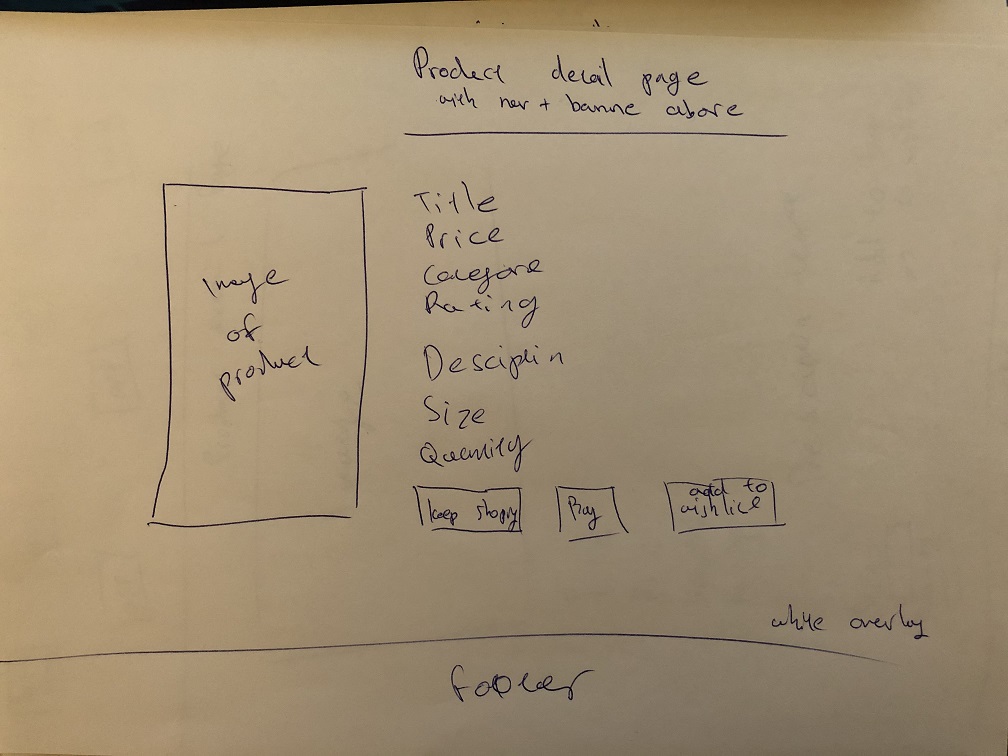 Product detail page
with nav + banne above
Image
of
product
Title
Price
Categore
Rating
Desciptin
Size
Quantity
keep shoping
Buy
add to
wishlist
white overlay
footer